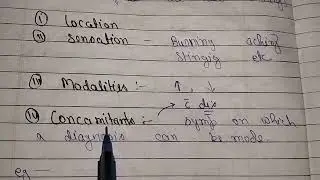 (i) Location
(ii) Sensation – Burning aching
Stingig etc
(iii) Modalities :- ↑, ↓
c̄ dis
(iv) Concamitants :- symp on which
a diagnosis can be made
eg –